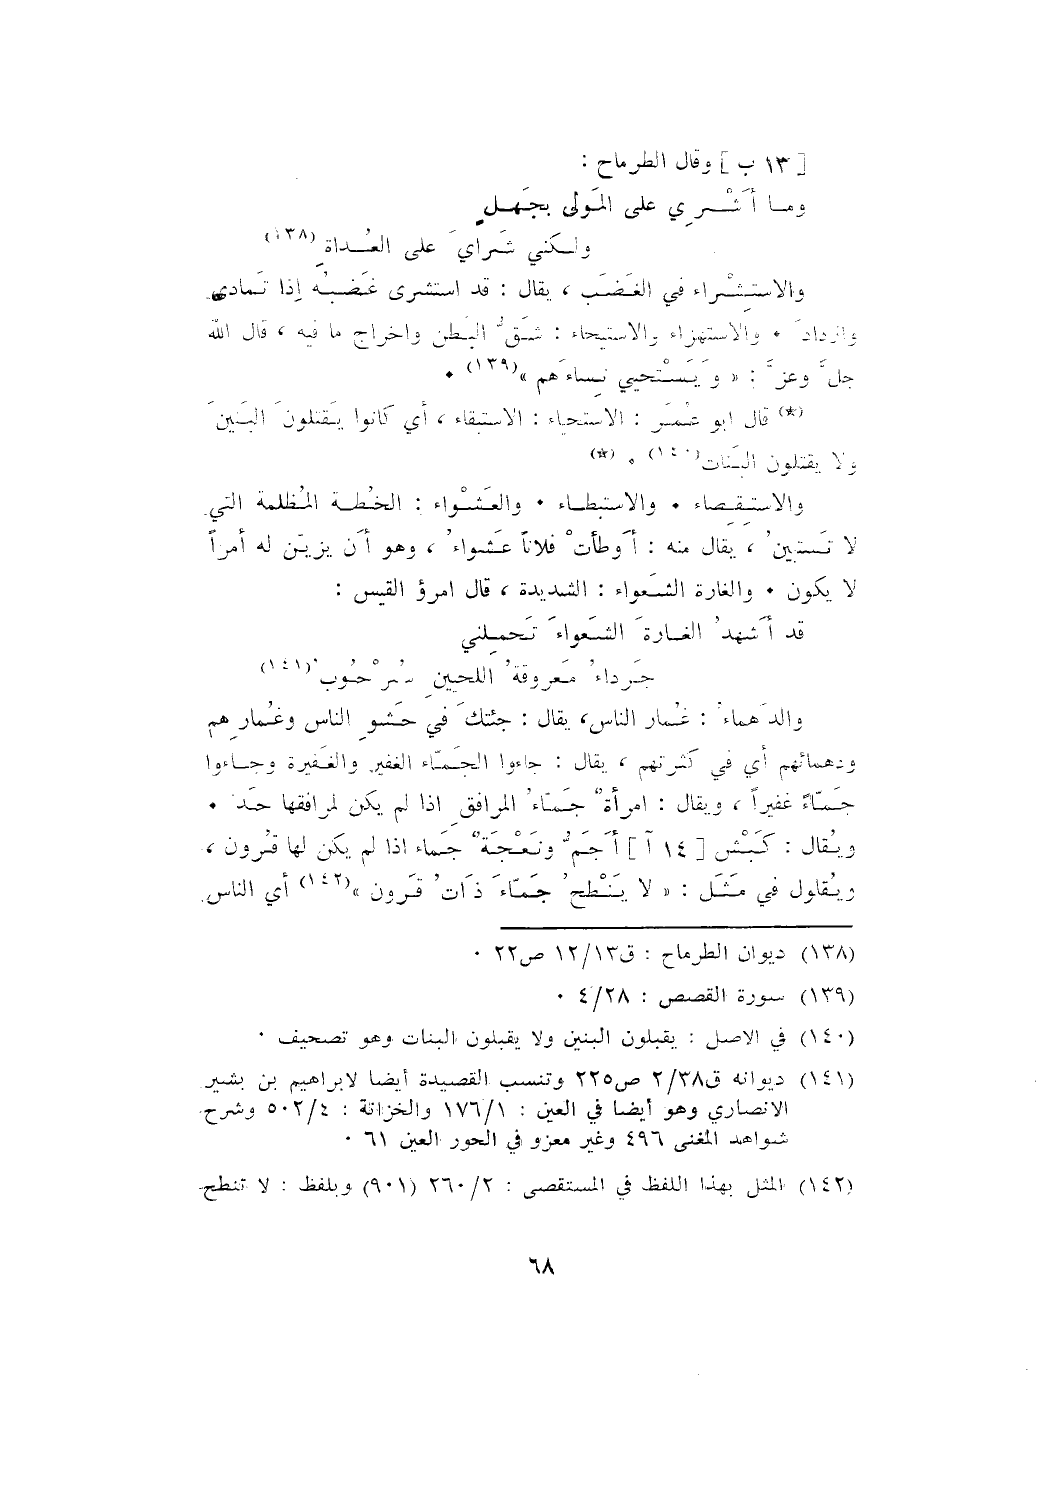 [ ١٣ ب ] وقال الطرماح :
وما أَشْري على المَولى بجَهلٍ
ولكني شَرايَ على العُداةِ (١٣٨)
والاستِشْراء في الغَضَب ، يقال : قد استشرى غَضَبُه إذا تَمادى
وازدادَ . والاستهزاء والاستيحاء : شَقُّ البَطن واخراج ما فيه ، قال الله
جلَّ وعزَّ : « وَيَسْتحيي نِساءَهم »(١٣٩) .
(*) قال ابو عُمَر : الاستحياء : الاستبقاء ، أي كانوا يَقتلونَ البَنينَ
ولا يقتلون البَنات(١٤٠) . (*)
والاستِقصاء . والاستِبطاء . والعَشْواء : الخُطة المُظلمة التي
لا تَستبينُ ، يقال منه : أَوطأتْ فلاناً عَشواءُ ، وهو أن يزيّن له أمراً
لا يكون . والغارة الشَعواء : الشديدة ، قال امرؤ القيس :
قد أَشهدُ الغارةَ الشَعواءَ تَحملني
جَرداءُ مَعروقةُ اللحيينِ سُرْحُوبُ(١٤١)
والدَهماءُ : غُمار الناس، يقال : جئتكَ في حَشوِ الناس وغُمارِهم
ودهمائهم أي في كثرتهم ، يقال : جاءوا الجَمّاء الغفير والغَفيرة وجاءوا
جَمّاءً غفيراً ، ويقال : امرأةٌ جَمّاءُ المرافقِ اذا لم يكن لمرافقها حَدّ .
ويُقال : كَبْش [ ١٤ آ ] أَجَمُّ ونَعْجَةٌ جَماء اذا لم يكن لها قُرون ،
ويُقاول في مَثَل : « لا يَنْطحُ جَمّاءَ ذَاتُ قَرون »(١٤٢) أي الناس
(١٣٨) ديوان الطرماح : ق١٢/١٣ ص٢٢ .
(١٣٩) سورة القصص : ٤/٢٨ .
(١٤٠) في الاصل : يقبلون البنين ولا يقبلون البنات وهو تصحيف .
(١٤١) ديوانه ق٢/٣٨ ص٢٢٥ وتنسب القصيدة أيضا لابراهيم بن بشير
الانصاري وهو أيضا في العين : ١٧٦/١ والخزانة : ٥٠٢/٤ وشرح
شواهد المغنى ٤٩٦ وغير معزو في الحور العين ٦١ .
(١٤٢) المثل بهذا اللفظ في المستقصى : ٢٦٠/٢ (٩٠١) وبلفظ : لا تنطح
٦٨